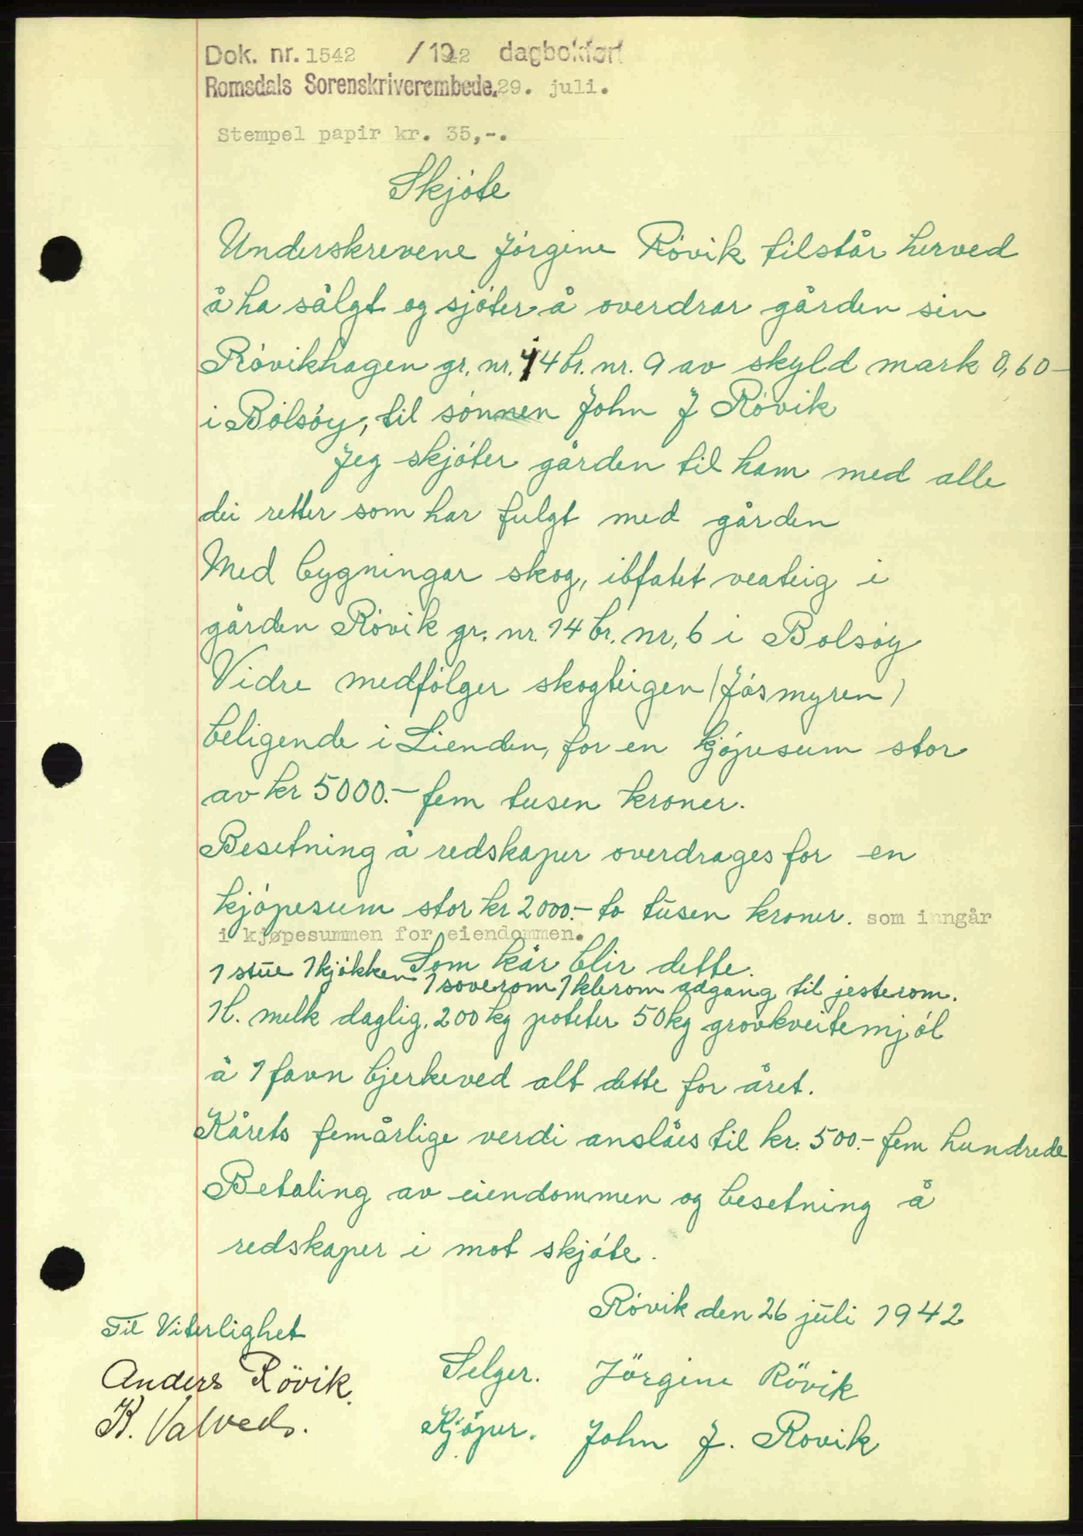 Dok. nr. 1542 /1942 dagbokført
Romsdals Sorenskriverembede. 29. juli.
Stempel papir kr. 35,-.
Skjóte
Underskrevene Jórgine Róvik tilstår herved
å ha sålgt og sjóter å overdrar gården sin
Róvikhagen gr. nr. 14 br. nr. 9 av skyld mark 0,60—
i Bolsóy, til sónnen John J Róvik
Jeg skjóter gården til ham med alle
dei retter som har fulgt med gården
Med bygningar skog, ibfatet veateig i
gården Róvik gr. nr. 14 br. nr, 6 i Bolsóy
Vidre medfólger skogteigen (Jósmyren)
beligende i Lienden, for en kjópesum stor
av kr 5000.— fem tusen kroner.
Besetning å redskaper overdrages for en
kjópesum stor kr 2000.— to tusen kroner. som inngår
i kjøpesummen for eiendommen.
Som kår blir dette
1 stue 1 kjókken 1 soverom 1 klerom adgang til jesterom.
1 l. melk daglig. 200 kg poteter 50 kg grovkveitemjól
å 1 favn bjerkeved alt dette for året.
Kårets femårlige verdi anslåes til kr. 500.— fem hundrede
Betaling av eiendommen og besetning å
redskaper i mot skjóte.
Róvik den 26 juli 1942
Til Viterlighet
Anders Rövik. Selger. Jörgine Rövik
K. Valved. Kjöper. John J. Rovik